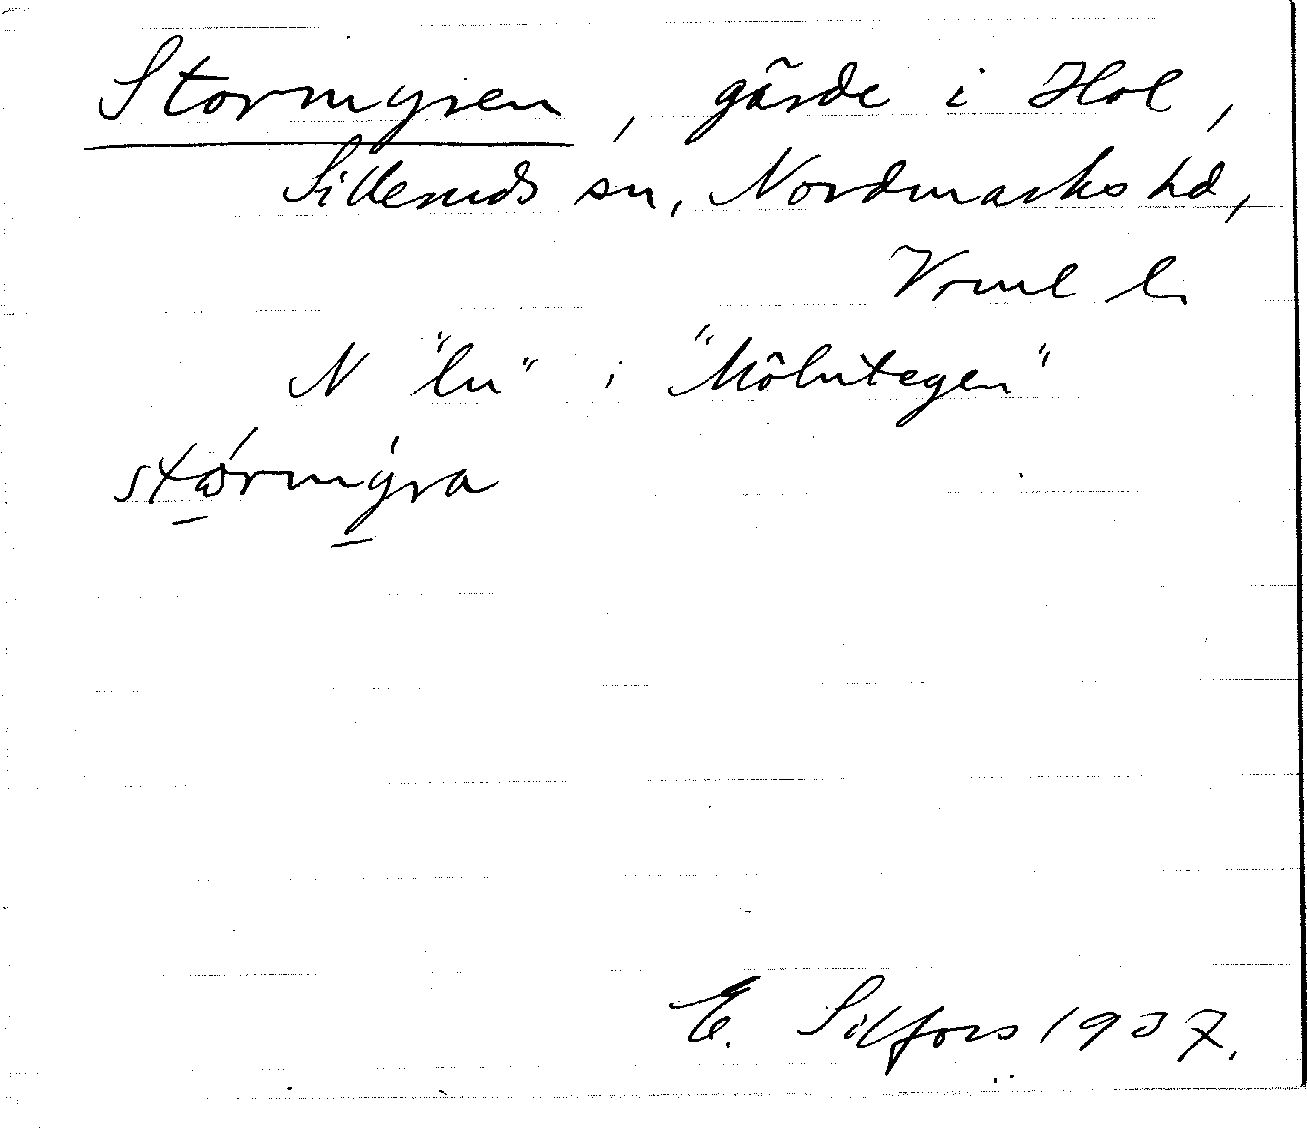 Stormyren, gärde i Hol,
Silleruds sn, Nordmarks hd,
Vrml l.
N "ln" i "Mölntegen"
stormyra
E. Silfors 1937.